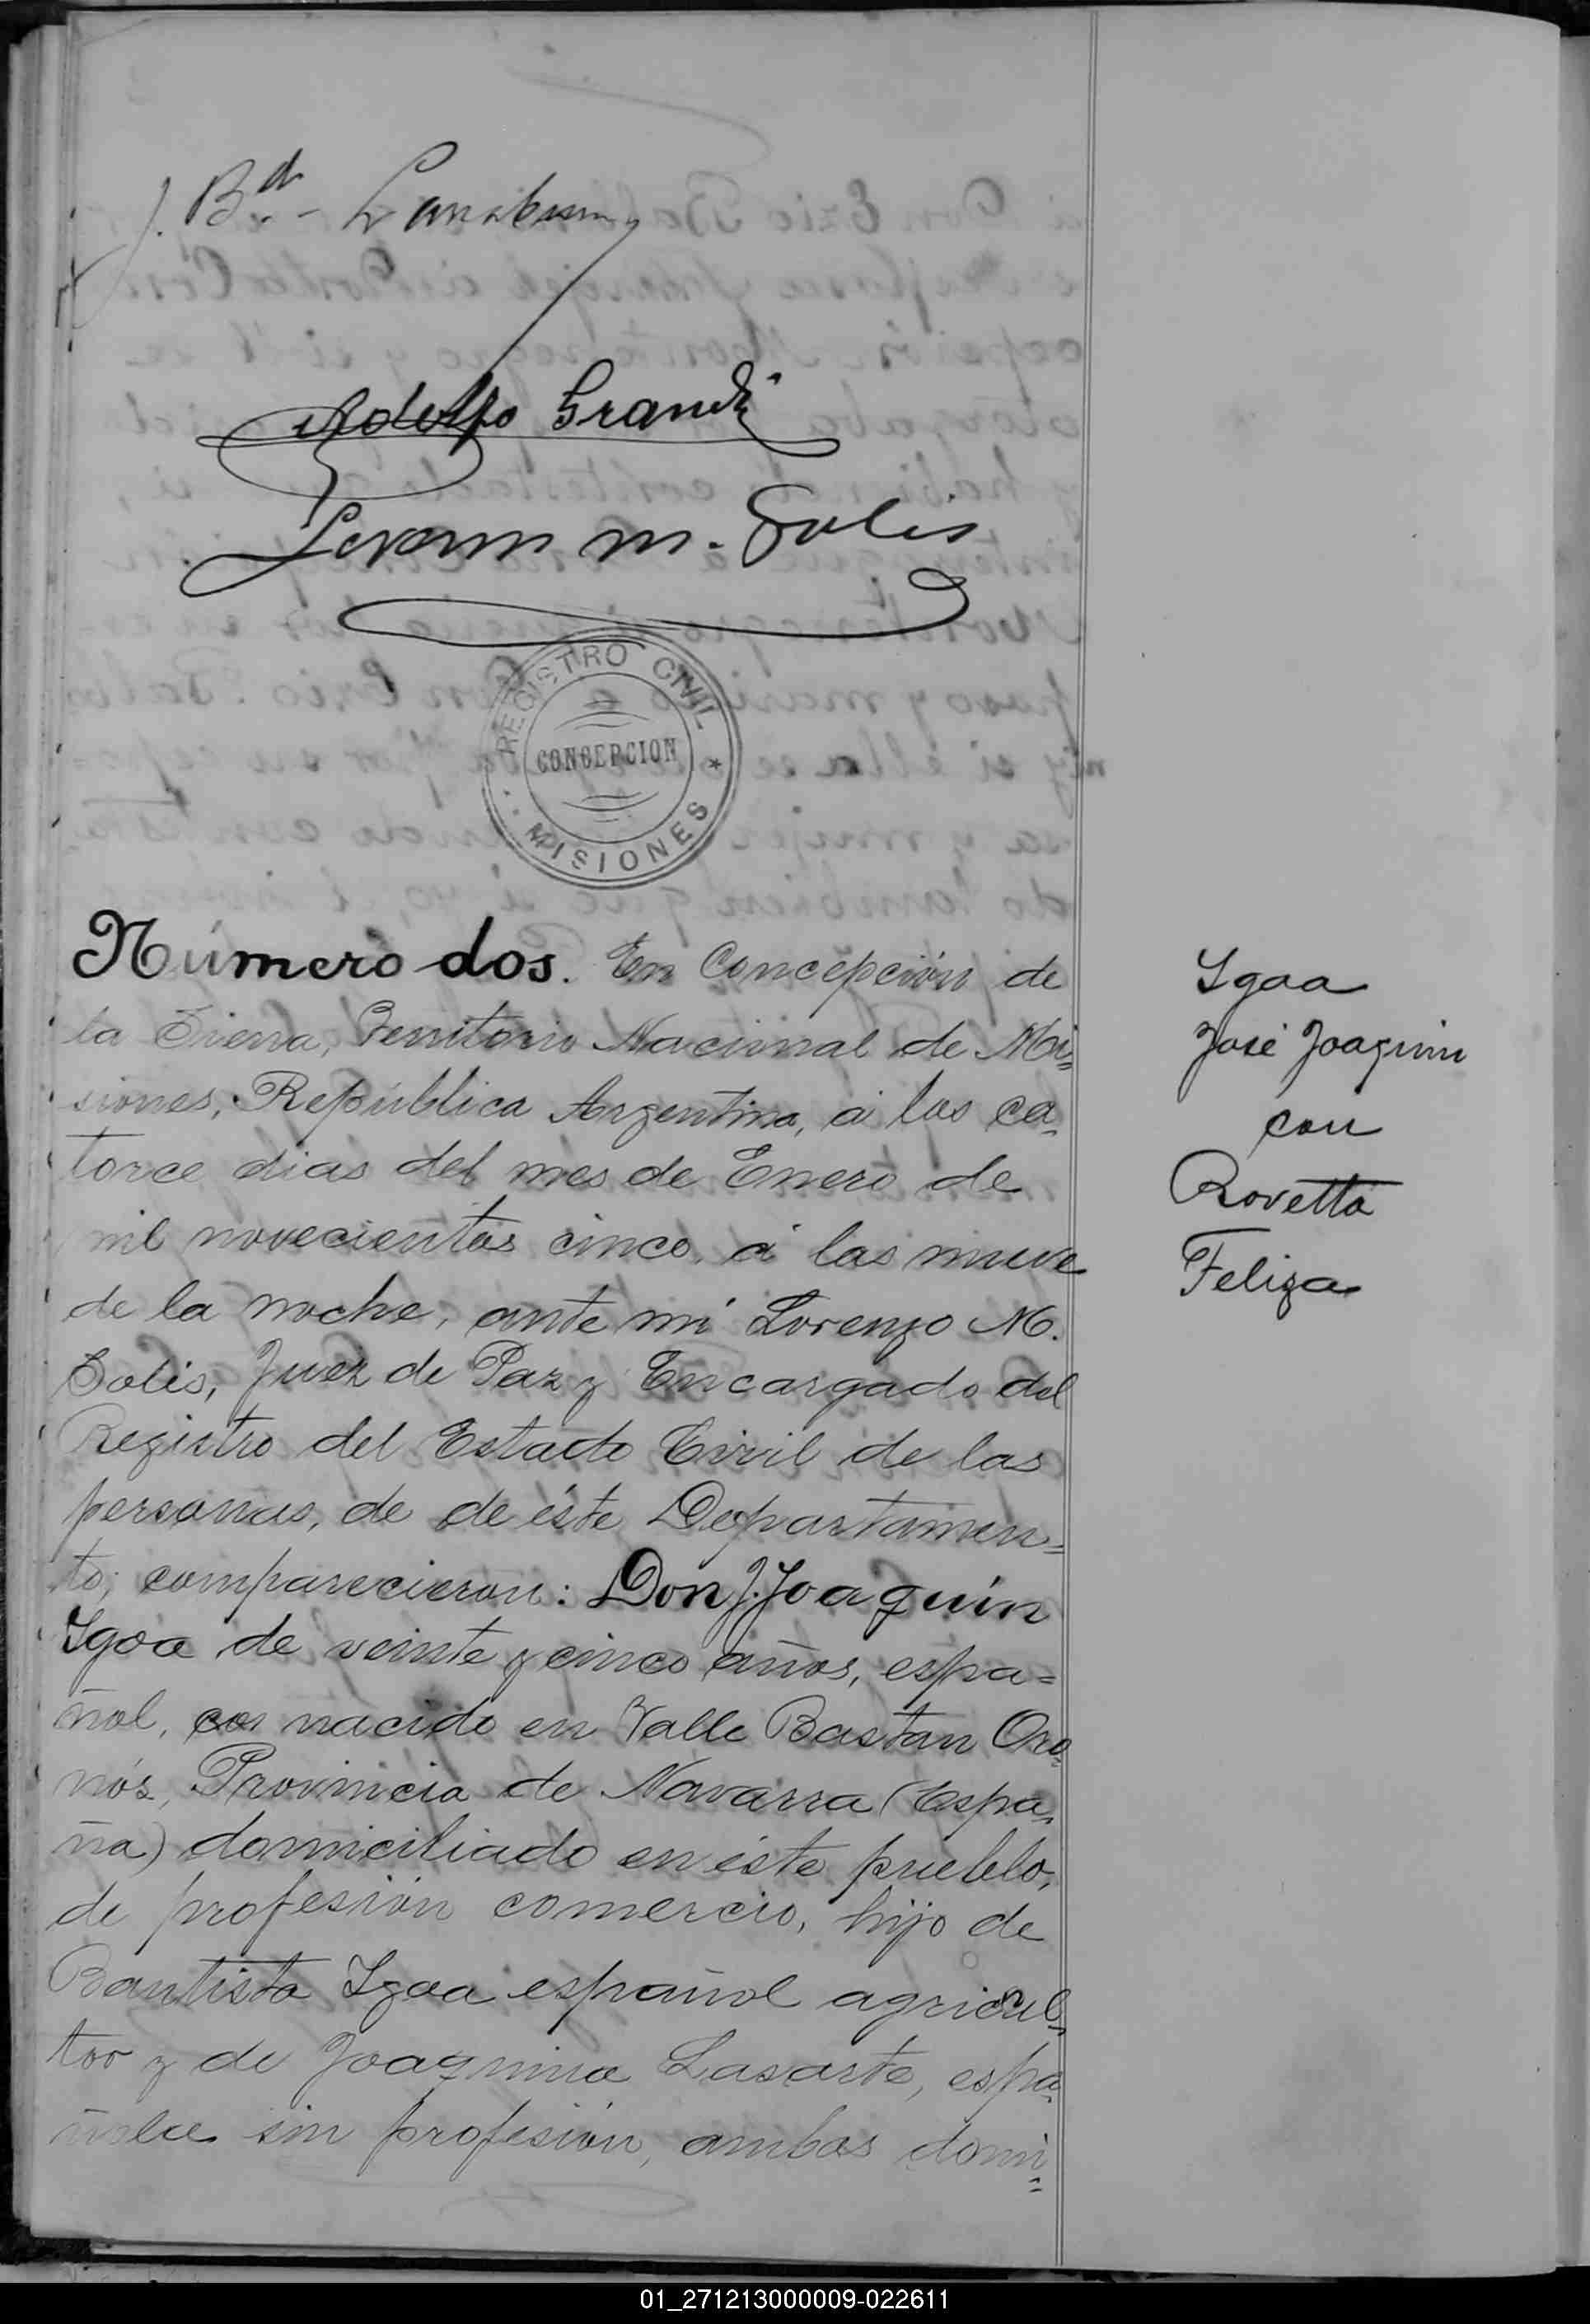 J. B.
Adolfo Grandi
Lorenzo M. Solis
REGISTRO CIVIL
CONCEPCION
MISIONES
Número dos. En Concepción de
la Sierra, Territorio Nacional de Mi-
siones, República Argentina, á los ca-
torce dias del mes de Enero de
mil novecientos cinco, á las nueve
de la noche, ante mí Lorenzo M.
Solis, Juez de Paz y Encargado del
Registro del Estado Civil de las
personas, de de éste Departamen=
to; comparecieron: Don J. Joaquín
Igoa de veinte y cinco años, espa=
ñol, nacido en Valle Bastan Oro-
nós, Provincia de Navarra (Espa-
ña) domiciliado en éste pueblo,
de profesión comercio, hijo de
Bautista Igoa español agricul-
tor y de Joaquina Lasarte, espa-
ñola sin profesión, ambos domi=
Igoa
José Joaquin
con
Rovetta
Feliza
01_271213000009-022611